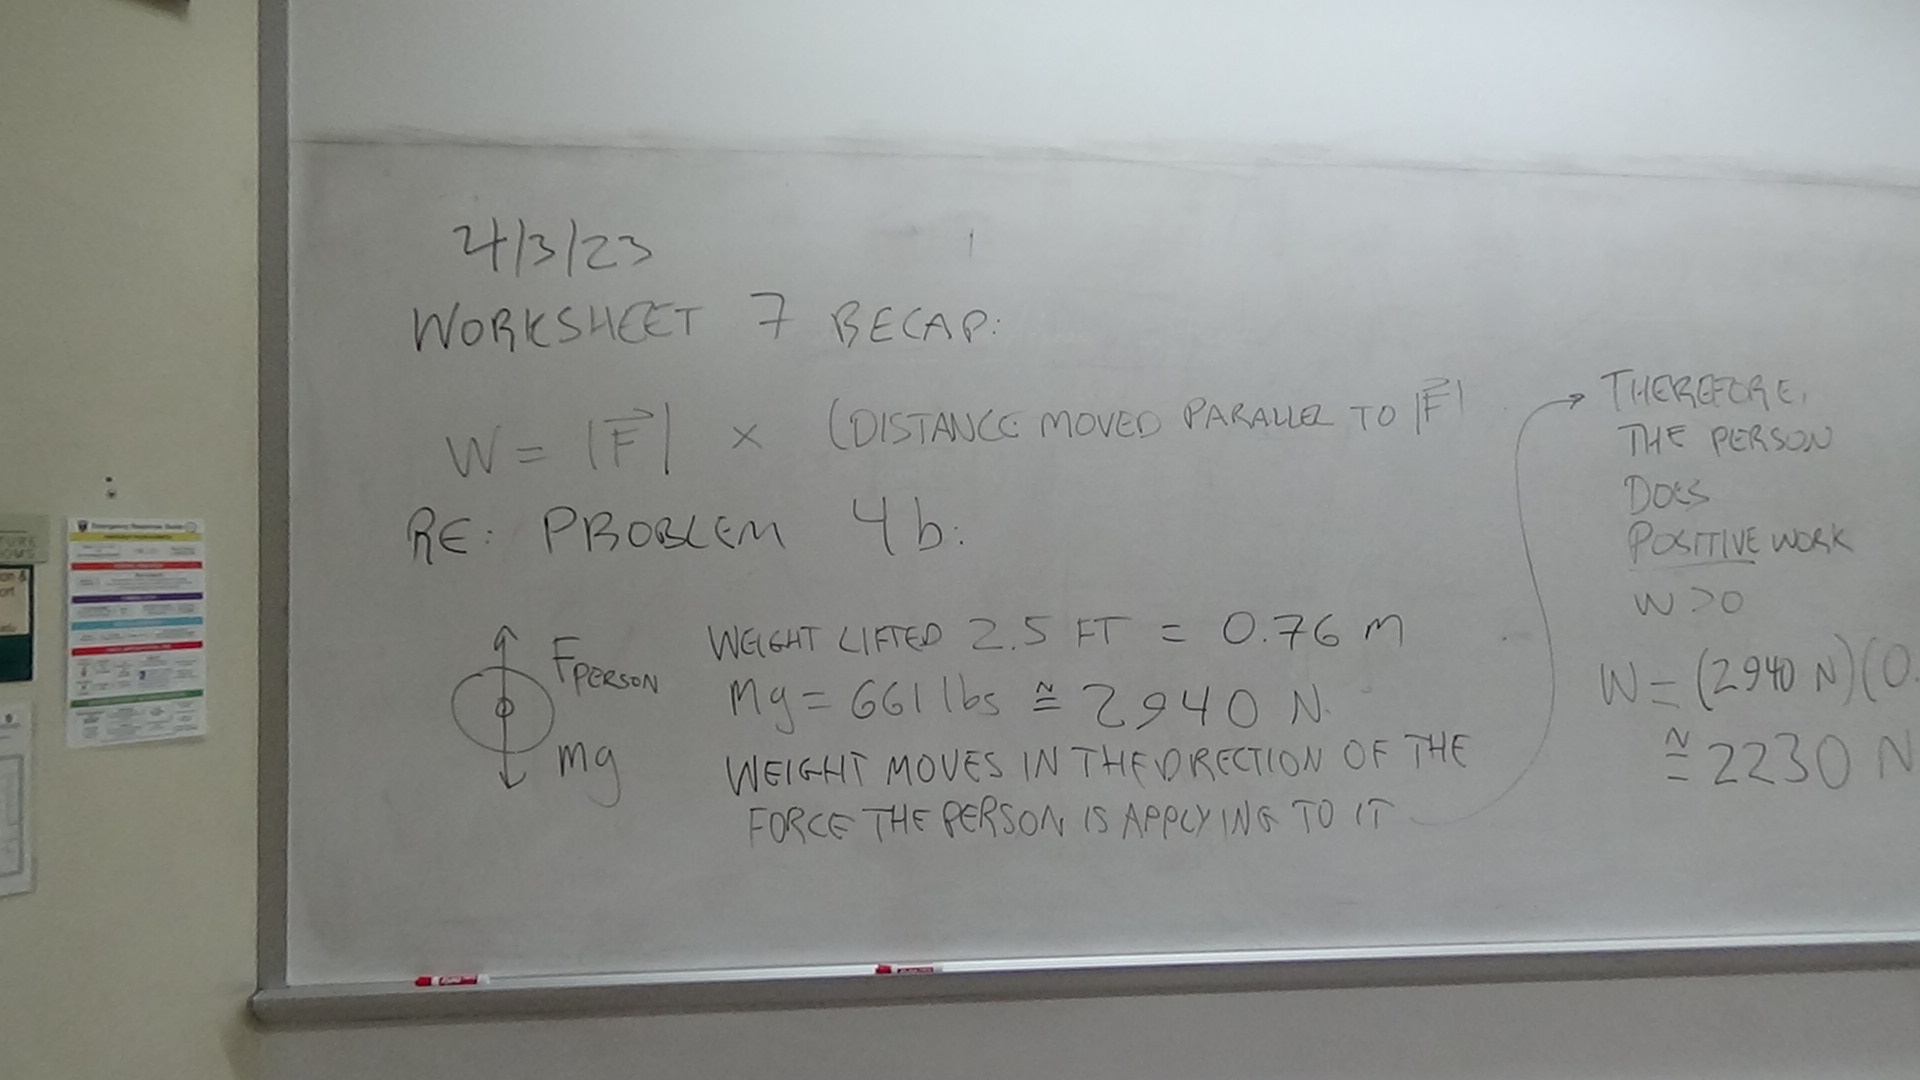 4/3/23
WORKSHEET 7 RECAP:
W = |F| × (DISTANCE MOVED PARALLEL TO |F|
RE: PROBLEM 4b:
F PERSON
mg
WEIGHT LIFTED 2.5 FT = 0.76 m
Mg = 661 lbs ≅ 2940 N.
WEIGHT MOVES IN THE DIRECTION OF THE
FORCE THE PERSON IS APPLYING TO IT
THEREFORE,
THE PERSON
DOES
POSITIVE WORK
W > 0
W = (2940 N)(0.
≅ 2230 N
Emergency Response Guide